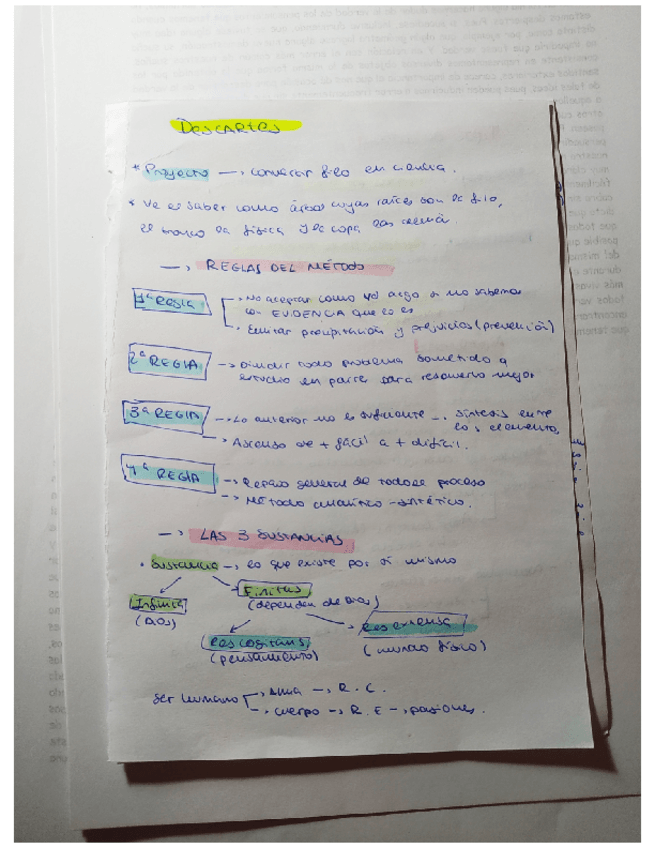 DESCARTES
* Proyecto → convertir filo en ciencia.
* Ve el saber como árbol cuyas raíces son la filo,
el tronco la física y la copa las
→ REGLAS DEL MÉTODO
1ª REGLA → No aceptar como algo si no sabemos
con EVIDENCIA que lo es
→ Evitar precipitación y prejuicios (prevención)
2ª REGLA → Dividir todo problema sometido a
estudio en partes para resolverlo mejor
3ª REGLA → Lo anterior no es suficiente → síntesis entre
los elementos
→ Ascenso de + fácil a + difícil.
4ª REGLA → Repaso general de todo proceso
→ Método analítico-sintético.
→ LAS 3 SUSTANCIAS
. Sustancia → lo que existe por sí mismo
Infinita
(DIOS)
Finitas
(dependen de Dios)
Res cogitans
(pensamiento)
Res extensa
(mundo físico)
Ser humano → Alma → R.C.
→ cuerpo → R.E → pasiones.